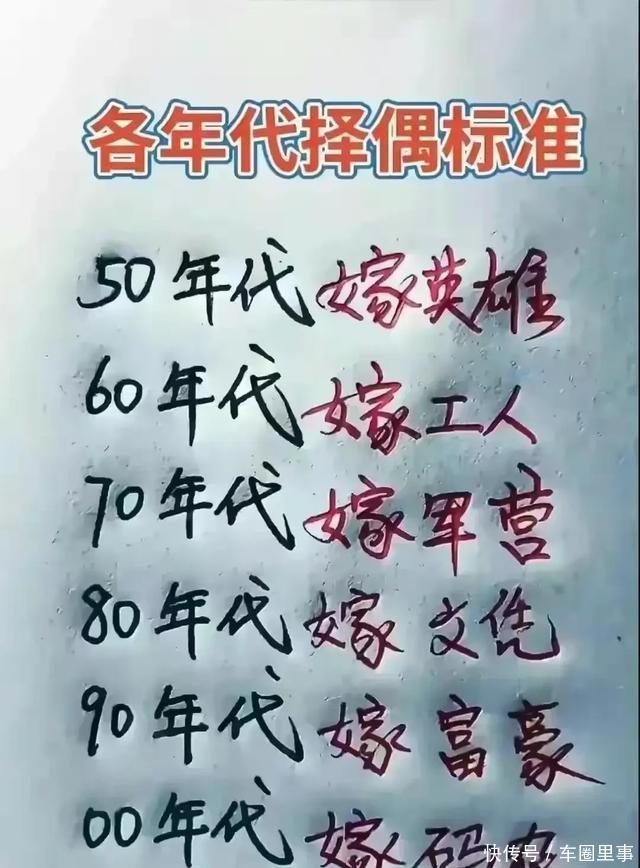 各年代择偶标准
50年代 嫁英雄
60年代 嫁工人
70年代 嫁军营
80年代 嫁文凭
90年代 嫁富豪
00年代 嫁码
快传号/车圈里事